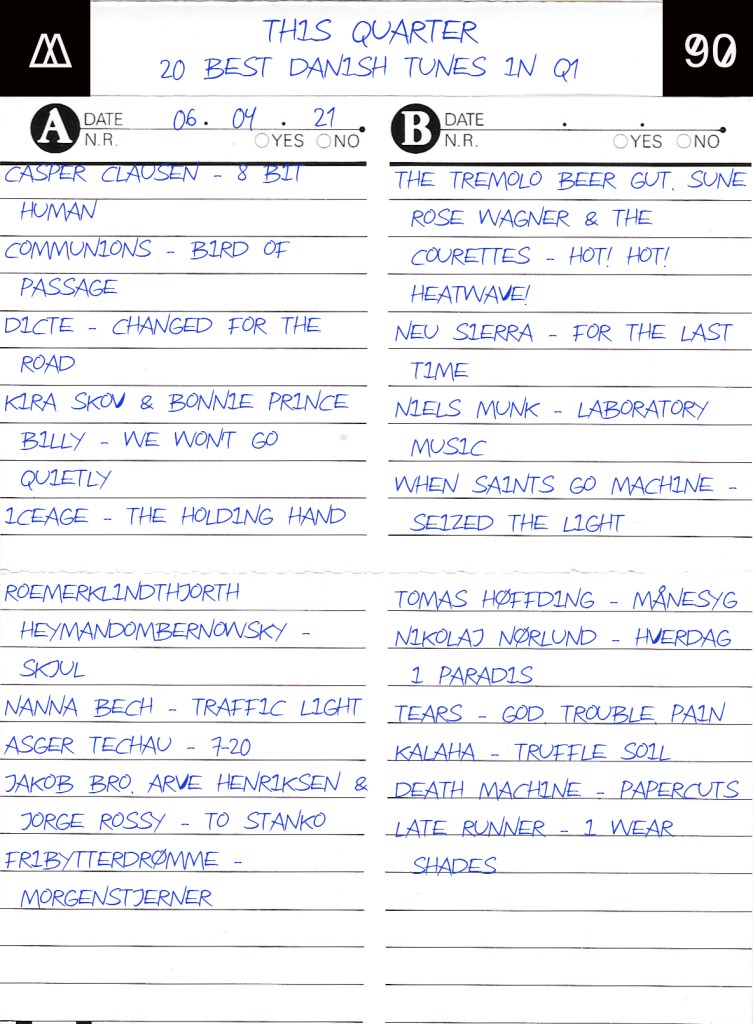 TH1S QUARTER
90
20 BEST DAN1SH TUNES 1N Q1
A DATE 06. 04. 21
N.R. YES NO
CASPER CLAUSEN - 8 B1T
HUMAN
COMMUN1ONS - B1RD OF
PASSAGE
D1CTE - CHANGED FOR THE
ROAD
K1RA SKOV & BONN1E PR1NCE
B1LLY - WE WON'T GO
QU1ETLY
1CEAGE - THE HOLD1NG HAND
ROEMERKL1NDTHJORTH
HEYMANDOMBERNOWSKY -
SKJUL
NANNA BECH - TRAFF1C L1GHT
ASGER TECHAU - 7-20
JAKOB BRO, ARVE HENR1KSEN &
JORGE ROSSY - TO STANKO
FR1BYTTERDRØMME -
MORGENSTJERNER
B DATE . .
N.R. YES NO
THE TREMOLO BEER GUT, SUNE
ROSE WAGNER & THE
COURETTES - HOT! HOT!
HEATWAVE!
NEU S1ERRA - FOR THE LAST
T1ME
N1ELS MUNK - LABORATORY
MUS1C
WHEN SA1NTS GO MACH1NE -
SE1ZED THE L1GHT
TOMAS HØFFD1NG - MÅNESYG
N1KOLAJ NØRLUND - HVERDAG
1 PARAD1S
TEARS - GOD, TROUBLE, PA1N
KALAHA - TRUFFLE SO1L
DEATH MACH1NE - PAPERCUTS
LATE RUNNER - 1 WEAR
SHADES